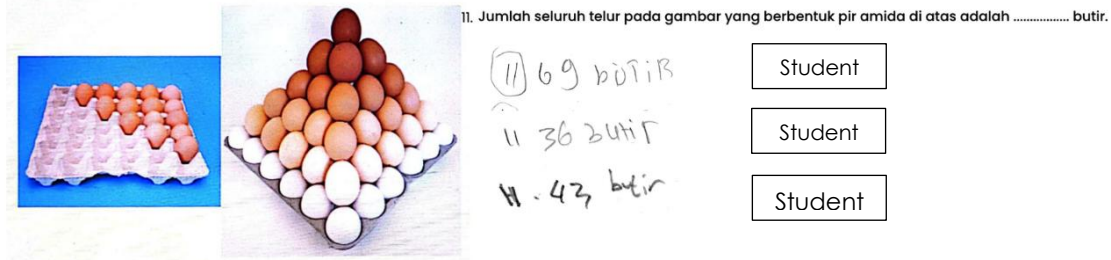 11. Jumlah seluruh telur pada gambar yang berbentuk pir amida di atas adalah ................. butir.
11 69 bUTiR
Student
11 36 butir
Student
11. 43 butir
Student